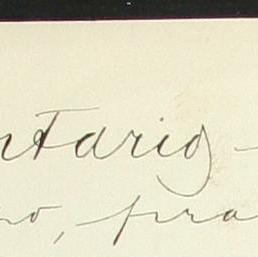 ntario -
no, pra